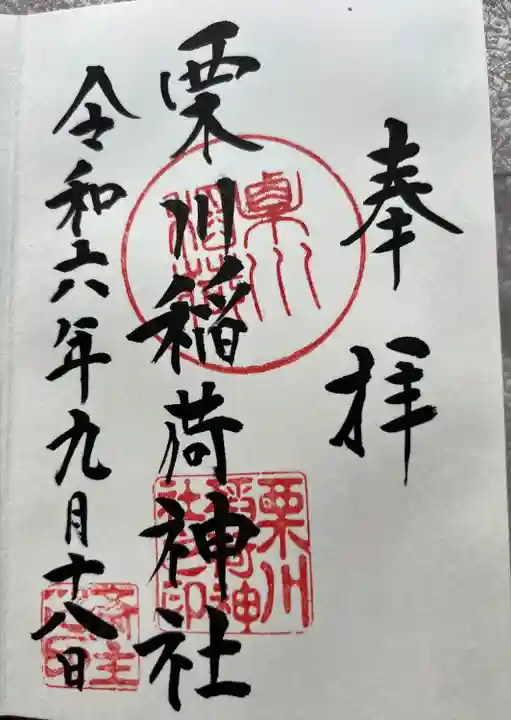 奉拝
栗川稲荷神社
令和六年九月十八日
栗川稲荷
栗川稲荷神社之印